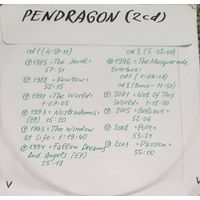 PENDRAGON (2cd)
cd 1 (4-57-11)
℗ 1985 = The Jewel =
57-31
℗ 1988 = Kowtow =
52-15
℗ 1991 = The World =
1-07-05
℗ 1993 = Nostradamus =
(EP) 15-20
℗ 1993 = The Window
Of Life = 1-19-40
℗ 1994 = Fallen Dreams
And Angels (EP)
25-18
cd 2 (5-02-00)
℗ 1996 = The Masquerade
Overture =
cd 1 (1-09-08)
cd 2 (Bonus =
℗ 2001 = Not Of This
World = 1-12-20
℗ 2005 = Believe =
52-06
℗ 2008 = Pure =
55-21
℗ 2011 = Passion =
55-00
V
V